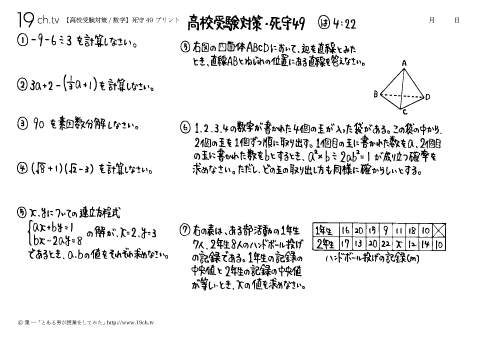 19 ch.tv 【高校受験対策/数学】死守49 プリント 高校受験対策・死守49 ㋩ 4:22 月 日
① -9-6÷3 を計算しなさい。
② 3a+2-(1/3a+1)を計算しなさい。
③ 90 を素因数分解しなさい。
④ (√5+1)(√5-3) を計算しなさい。
⑤ x,yについての連立方程式
{ax+by=1
bx-2ay=8
の解が、x=2,y=3
であるとき、a.bの値をそれぞれ求めなさい。
⑤ 右図の四面体ABCDにおいて、辺を直線とみた
とき、直線ABとねじれの位置にある直線を答えなさい。
A
B
C
D
⑥ 1.2.3.4の数字が書かれた4個の玉が入った袋がある。この袋の中から、
2個の玉を1個ずつ順に取り出す。1個目の玉に書かれた数をa、2個目
の玉に書かれた数をbとするとき、a²×b÷2ab²=1が成り立つ確率を
求めなさい。ただし、どの玉の取り出し方も同様に確からしいとする。
⑦ 右の表は、ある部活動の1年生
7人、2年生8人のハンドボール投げ
の記録である。1年生の記録の
中央値と2年生の記録の中央値
が等しいとき、xの値を求めなさい。
1年生 16 20 15 9 11 18 10
2年生 17 13 20 22 x 12 14 10
ハンドボール投げの記録(m)
© 葉一「とある男が授業をしてみた」http://www.19ch.tv